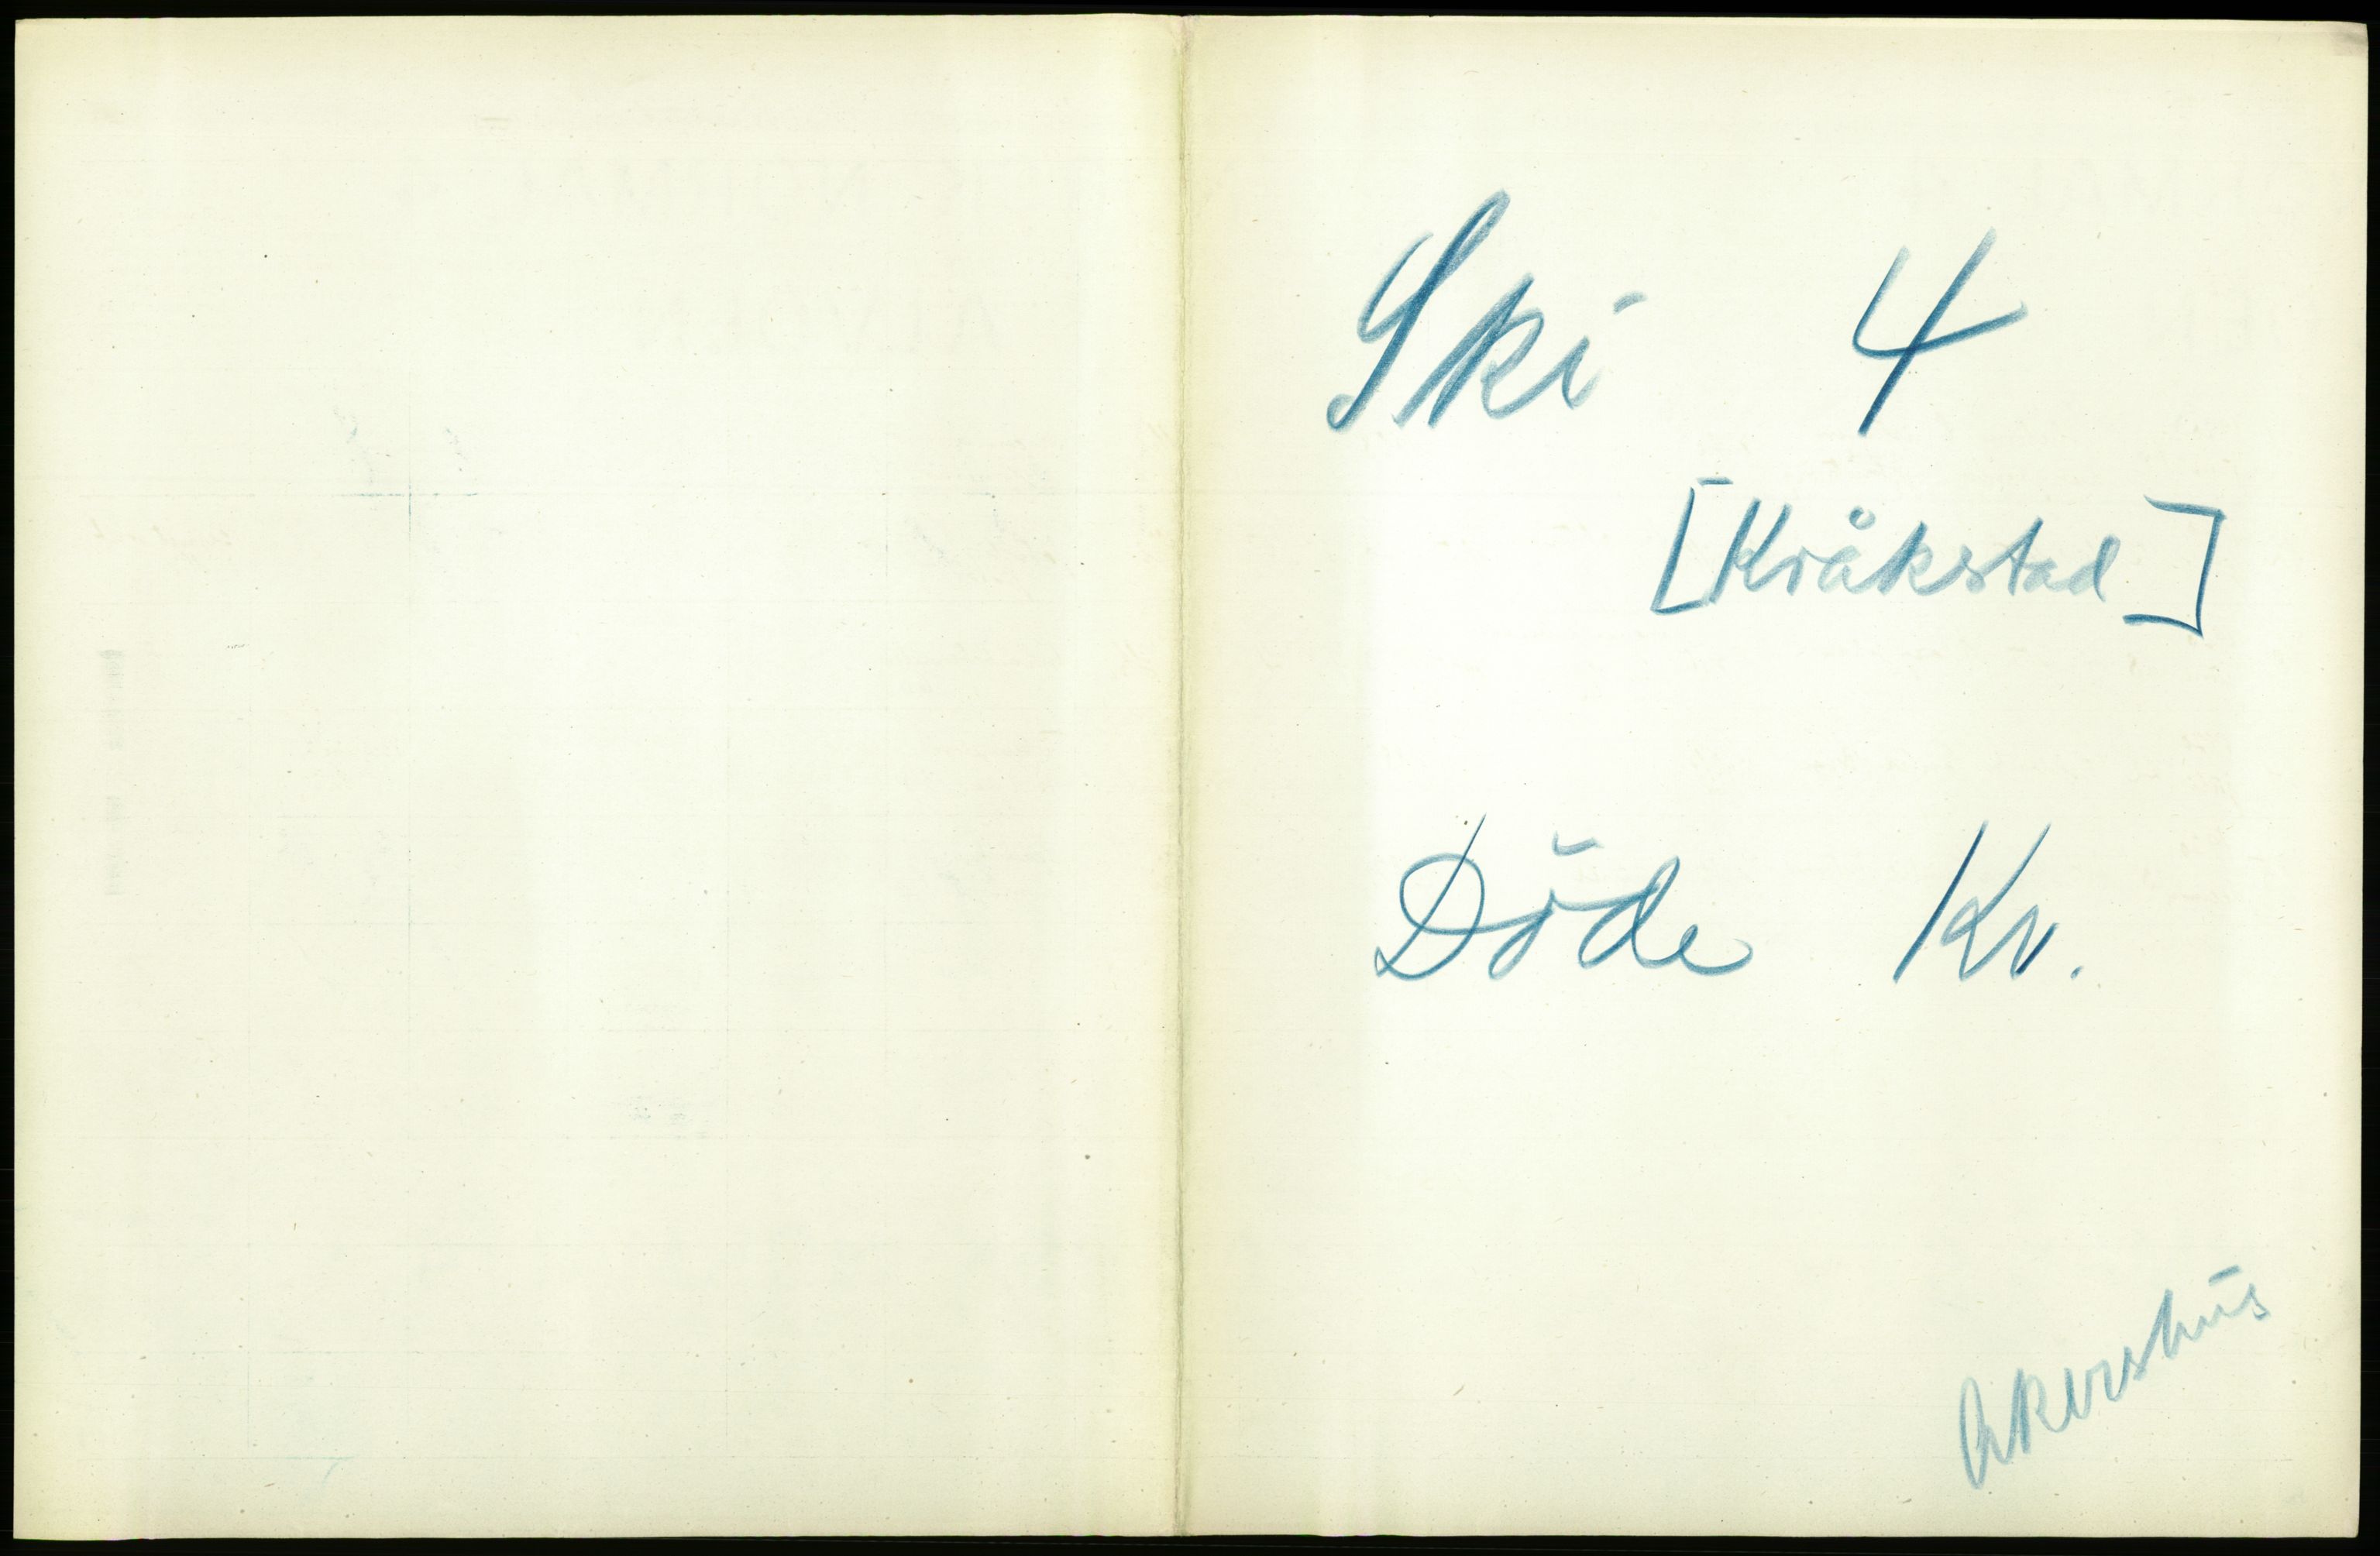 Ski 4
[Kråkstad]
Döde Kv.
Akershus